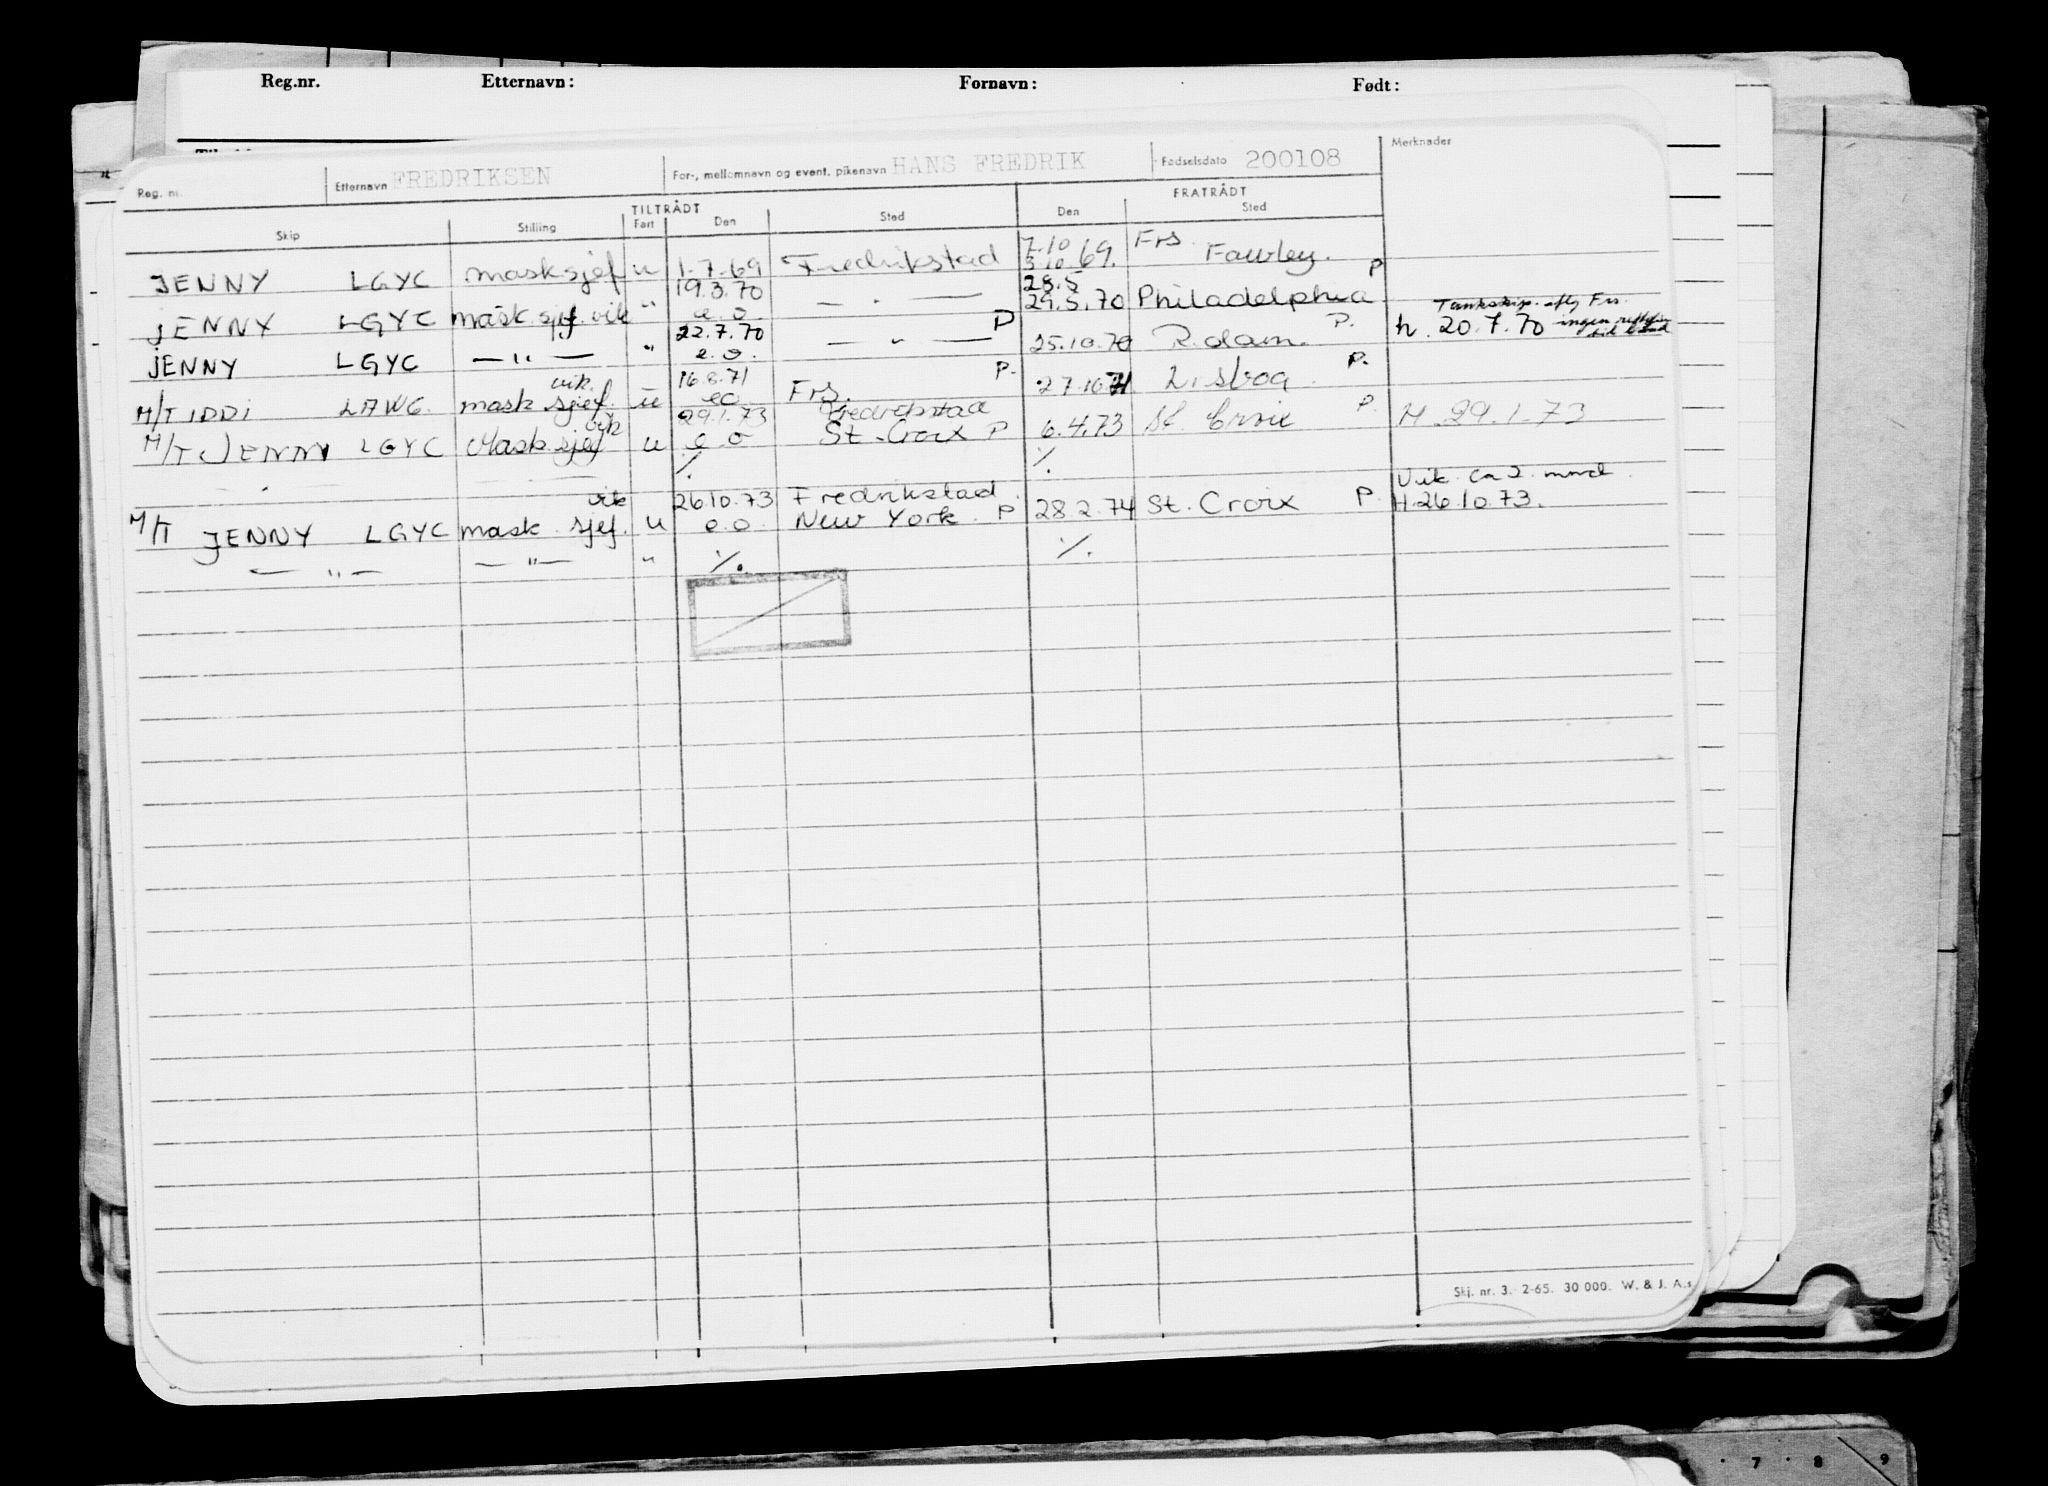 Reg.nr. Etternavn: Fornavn: Født:
Reg. nr. Etternavn FREDRIKSEN For-, mellomnavn og event. pikenavn HANS FREDRIK Fødselsdato 200108 Merknader
TILTRÅDT FRATRÅDT
Skip Stilling Fart Den Sted Den Sted
7.10 Frs.
JENNY LGYC mask sjef u 1.7.69 Fredrikstad 5.10.69. Fawley. P
19.3.70 28.5
JENNY LGYC mask. sjef. vik " e.o. — " — 29.5.70 Philadelphia Tankskip. Frs.
22.7.70 P P. h. 20.7.70 ingen
JENNY LGYC — " — " e.o. — " — 25.10.70 R.dam.
vik. 16.8.71 P. P.
M/T IDDI LAWG. mask sjef. u eo Frs. 27.10.71 Lisboa
vik 29.1.73 Fredrikstad P.
M/T JENNY LGYC Mask sjef u e.o St. Croix P 6.4.73 St. Croix H. 29.1.73
— " — — ./. ./.
vik 26.10.73 Fredrikstad. Vik. ca 2. mnd.
M/T JENNY LGYC mask. sjef. u e.o. New York. P 28.2.74 St. Croix P. H. 26.10.73.
— " — — " — " ./. ./.
Skj. nr. 3. 2-65. 30 000. W. & J. A.s
7 8 9